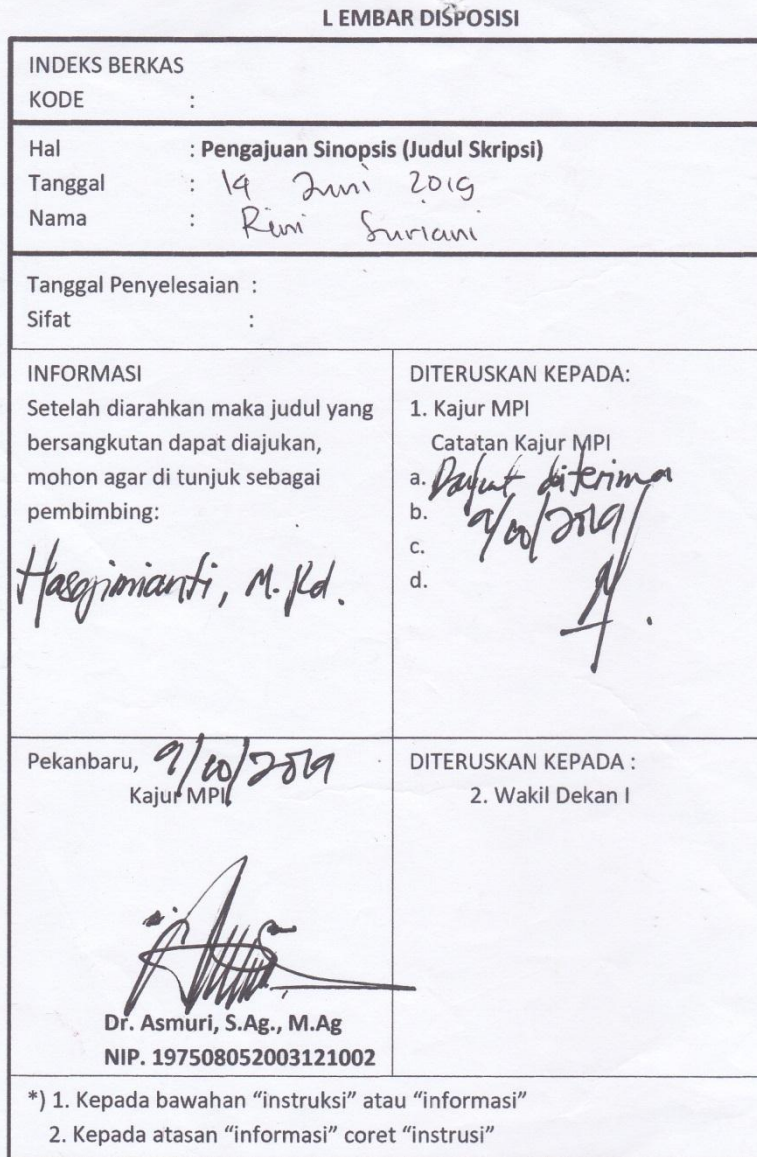 L EMBAR DISPOSISI
INDEKS BERKAS
KODE :
Hal : Pengajuan Sinopsis (Judul Skripsi)
Tanggal : 14 Juni 2019
Nama : Suriani
Tanggal Penyelesaian :
Sifat :
INFORMASI
Setelah diarahkan maka judul yang
bersangkutan dapat diajukan,
mohon agar di tunjuk sebagai
pembimbing:
M. Pd.
DITERUSKAN KEPADA:
1. Kajur MPI
Catatan Kajur MPI
a. Dapat diterima
b. 9/10/2019
c.
d.
Pekanbaru, 9/10/2019
Kajur MPI
Dr. Asmuri, S.Ag., M.Ag
NIP. 197508052003121002
DITERUSKAN KEPADA :
2. Wakil Dekan I
*) 1. Kepada bawahan “instruksi” atau “informasi”
2. Kepada atasan “informasi” coret “instrusi”